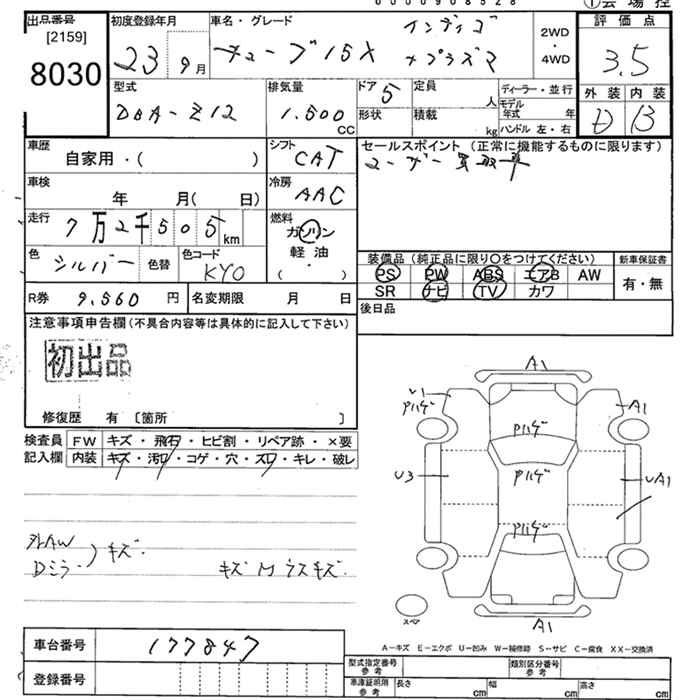 出品番号
[2159]
8030
初度登録年月
23 9月
車名・グレード
キューブ 15X
インディゴ
+プラズマ
2WD
・
4WD
評価点
3.5
外装 内装
D B
型式
DBA-Z12
排気量
1.500
CC
ドア
5
形状
定員
人
積載
kg
ディーラー・並行
モデル
年式 年
ハンドル 左・右
車歴
自家用・( )
シフト
CAT
セールスポイント (正常に機能するものに限ります)
ユーザー買取車
車検
年 月( 日)
冷房
AAC
走行
7万2千505km
燃料
ガソリン
軽油
( ・ )
色
シルバー
色替
色コード
KYO
装備品 (純正品に限り〇をつけてください)
PS PW ABS エアB AW
SR ナビ TV カワ
新車保証書
有・無
R券 9.560 円 名変期限 月 日
後日品
注意事項申告欄(不具合内容等は具体的に記入して下さい)
初出品
修復歴 有 〔箇所 〕
検査員 FW キズ・飛石・ヒビ割・リペア跡・×要
記入欄 内装 キズ・汚れ・コゲ・穴・スレ・キレ・破レ
A1
U1
Pハゲ
A1
Pハゲ
U3
Pハゲ
UA1
Pハゲ
外AW
Dミラー
) キズ.
キズ M ラスキズ.
スペア
A1
A-キズ E-エクボ U-凹み W-補修跡 S-サビ C-腐食 XX-交換済
車台番号 177847
登録番号
型式指定番号
参考
類別区分番号
参考
車庫証明用
参考
長さ cm 幅 cm 高さ cm